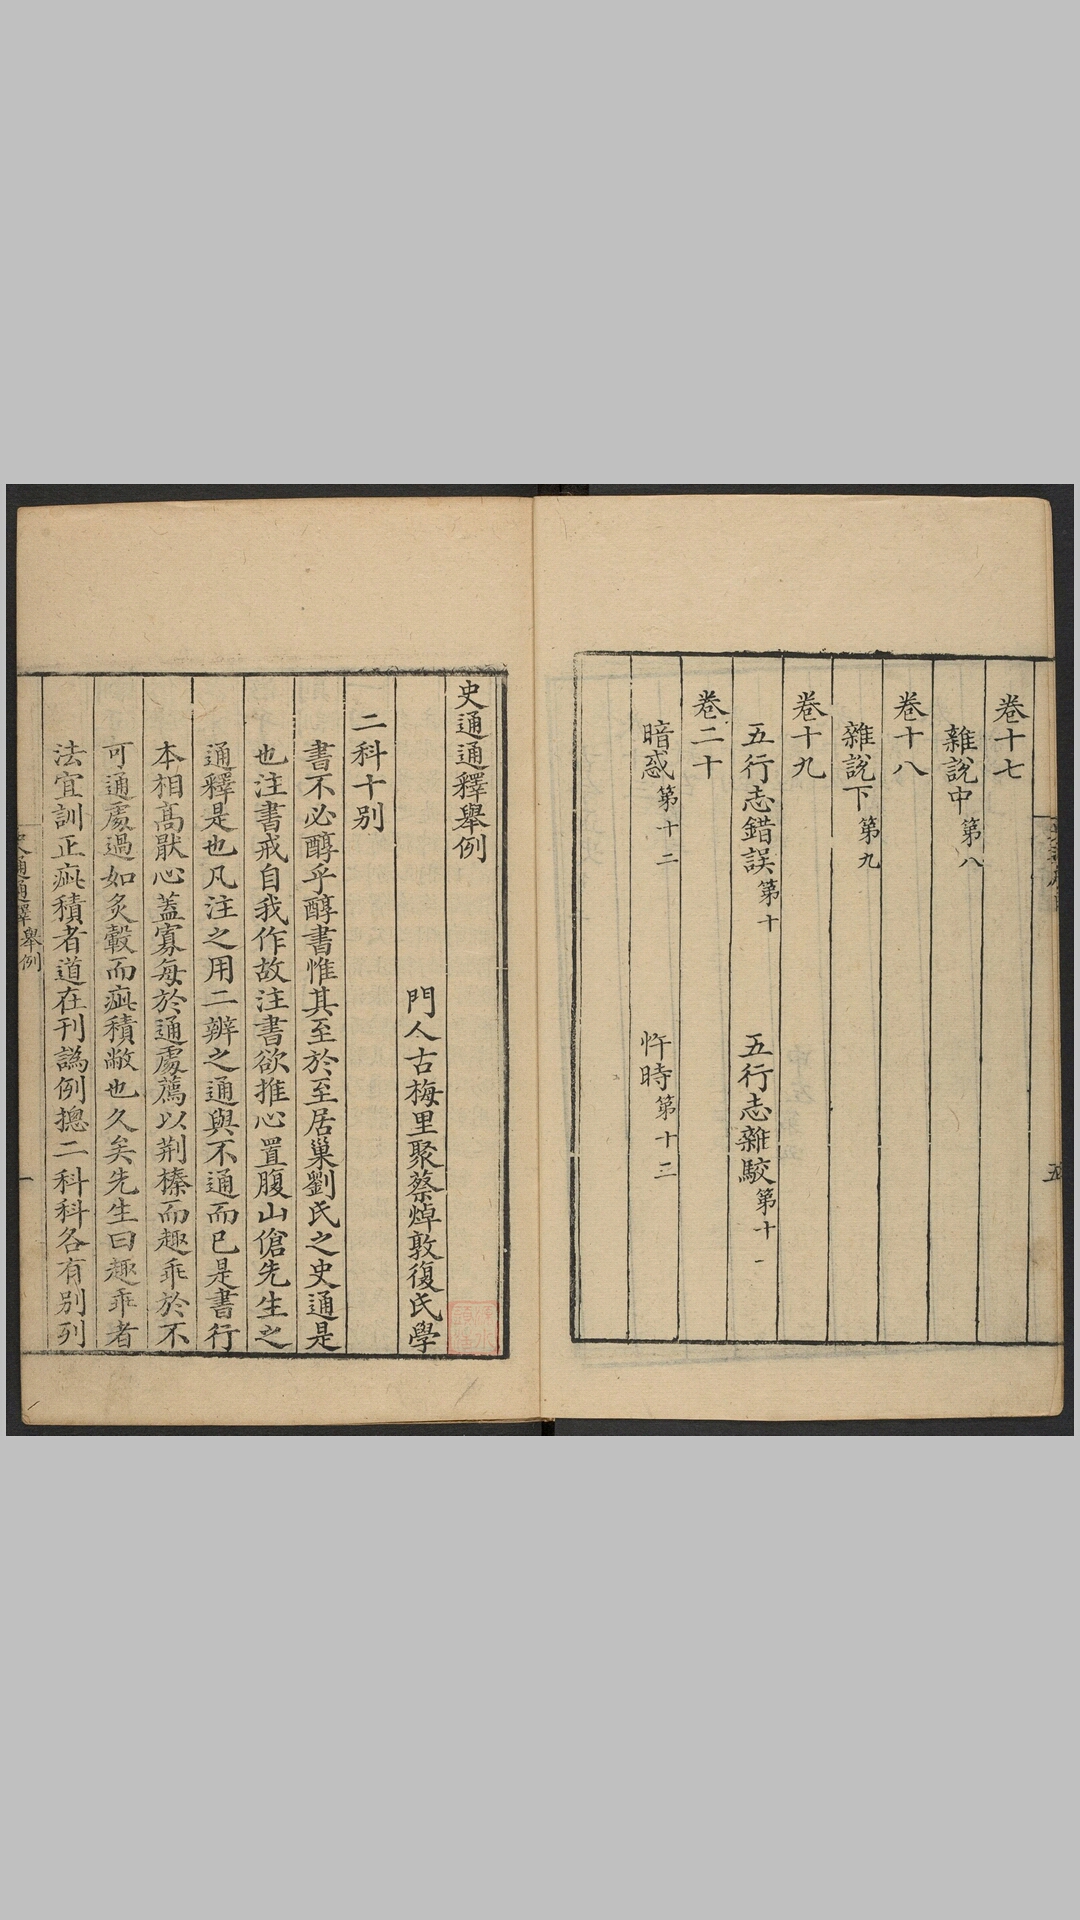 卷十七
雜說中第八
卷十八
雜說下第九
卷十九
五行志錯誤第十 五行志雜駮第十一
卷二十
暗惑第十二 忤時第十三
五
史通通釋舉例
門人古梅里聚蔡焯敦復氏學
二科十別
書不必醇乎醇書惟其至於至居巢劉氏之史通是
也注書戒自我作故注書欲推心置腹山傖先生之
通釋是也凡注之用二辨之通與不通而已是書行
本相高厭心蓋寡每於通處薦以荆榛而趣乖於不
可通處過如炙轂而疻積敝也久矣先生曰趣乖者
法宜訓正疻積者道在刊譌例摠二科科各有別列
史通通釋 舉例
一